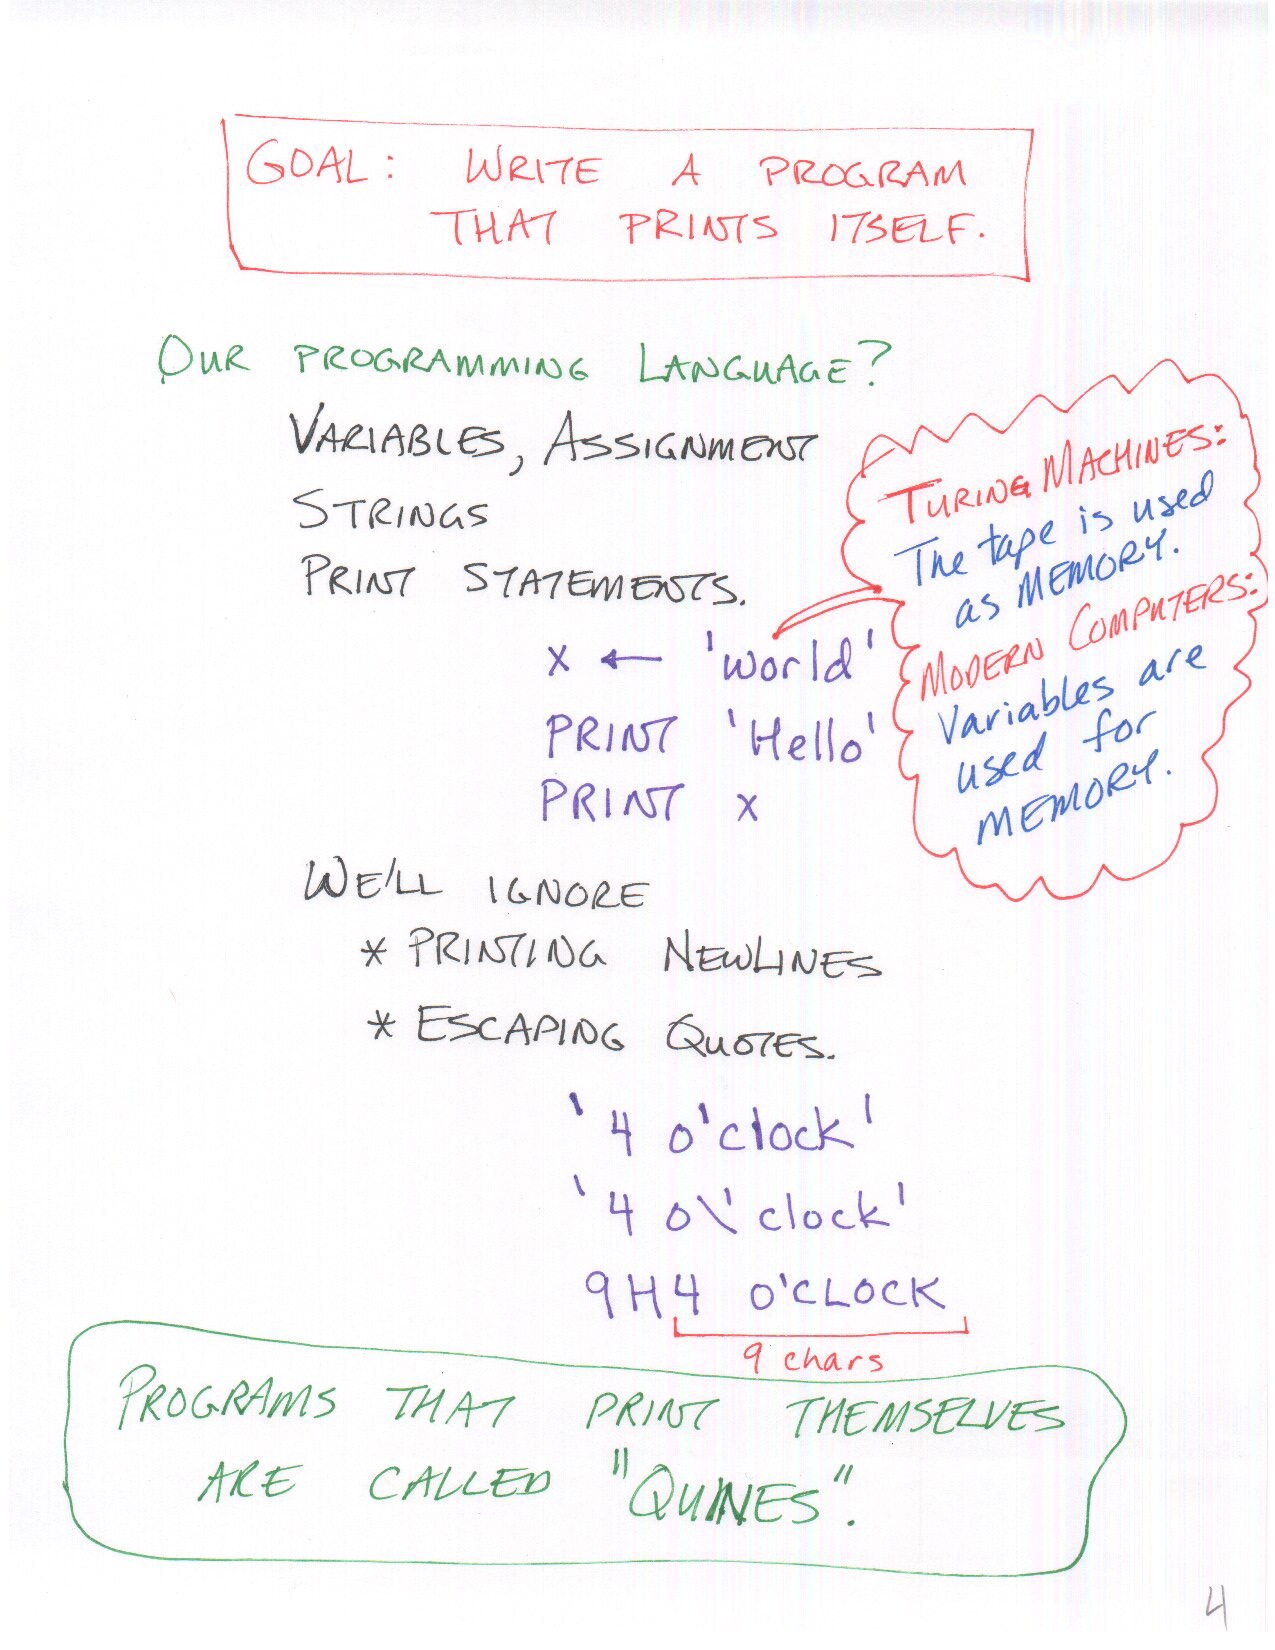 GOAL: WRITE A PROGRAM
THAT PRINTS ITSELF.
OUR PROGRAMMING LANGUAGE?
VARIABLES, ASSIGNMENT
STRINGS
PRINT STATEMENTS.
x ← 'world'
PRINT 'Hello'
PRINT x
TURING MACHINES:
The tape is used
as MEMORY.
MODERN COMPUTERS:
Variables are
used for
MEMORY.
WE'LL IGNORE
* PRINTING NEWLINES
* ESCAPING QUOTES.
'4 o'clock'
'4 o\'clock'
9H4 O'CLOCK
9 chars
PROGRAMS THAT PRINT THEMSELVES
ARE CALLED "QUINES".
4